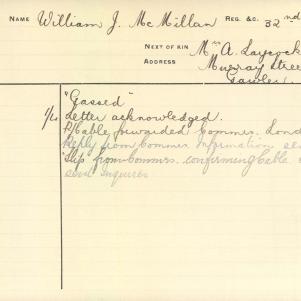 NAME William J. McMillan REG. &C. 32nd
NEXT OF KIN Mrs A. Laycock
ADDRESS Murray Stree
Gawler
"Gassed"
Letter acknowledged.
Cable forwarded Commrs. Lond
Reply from Commrs Information se
Slip from Commrs. confirming Cable
send inquiries